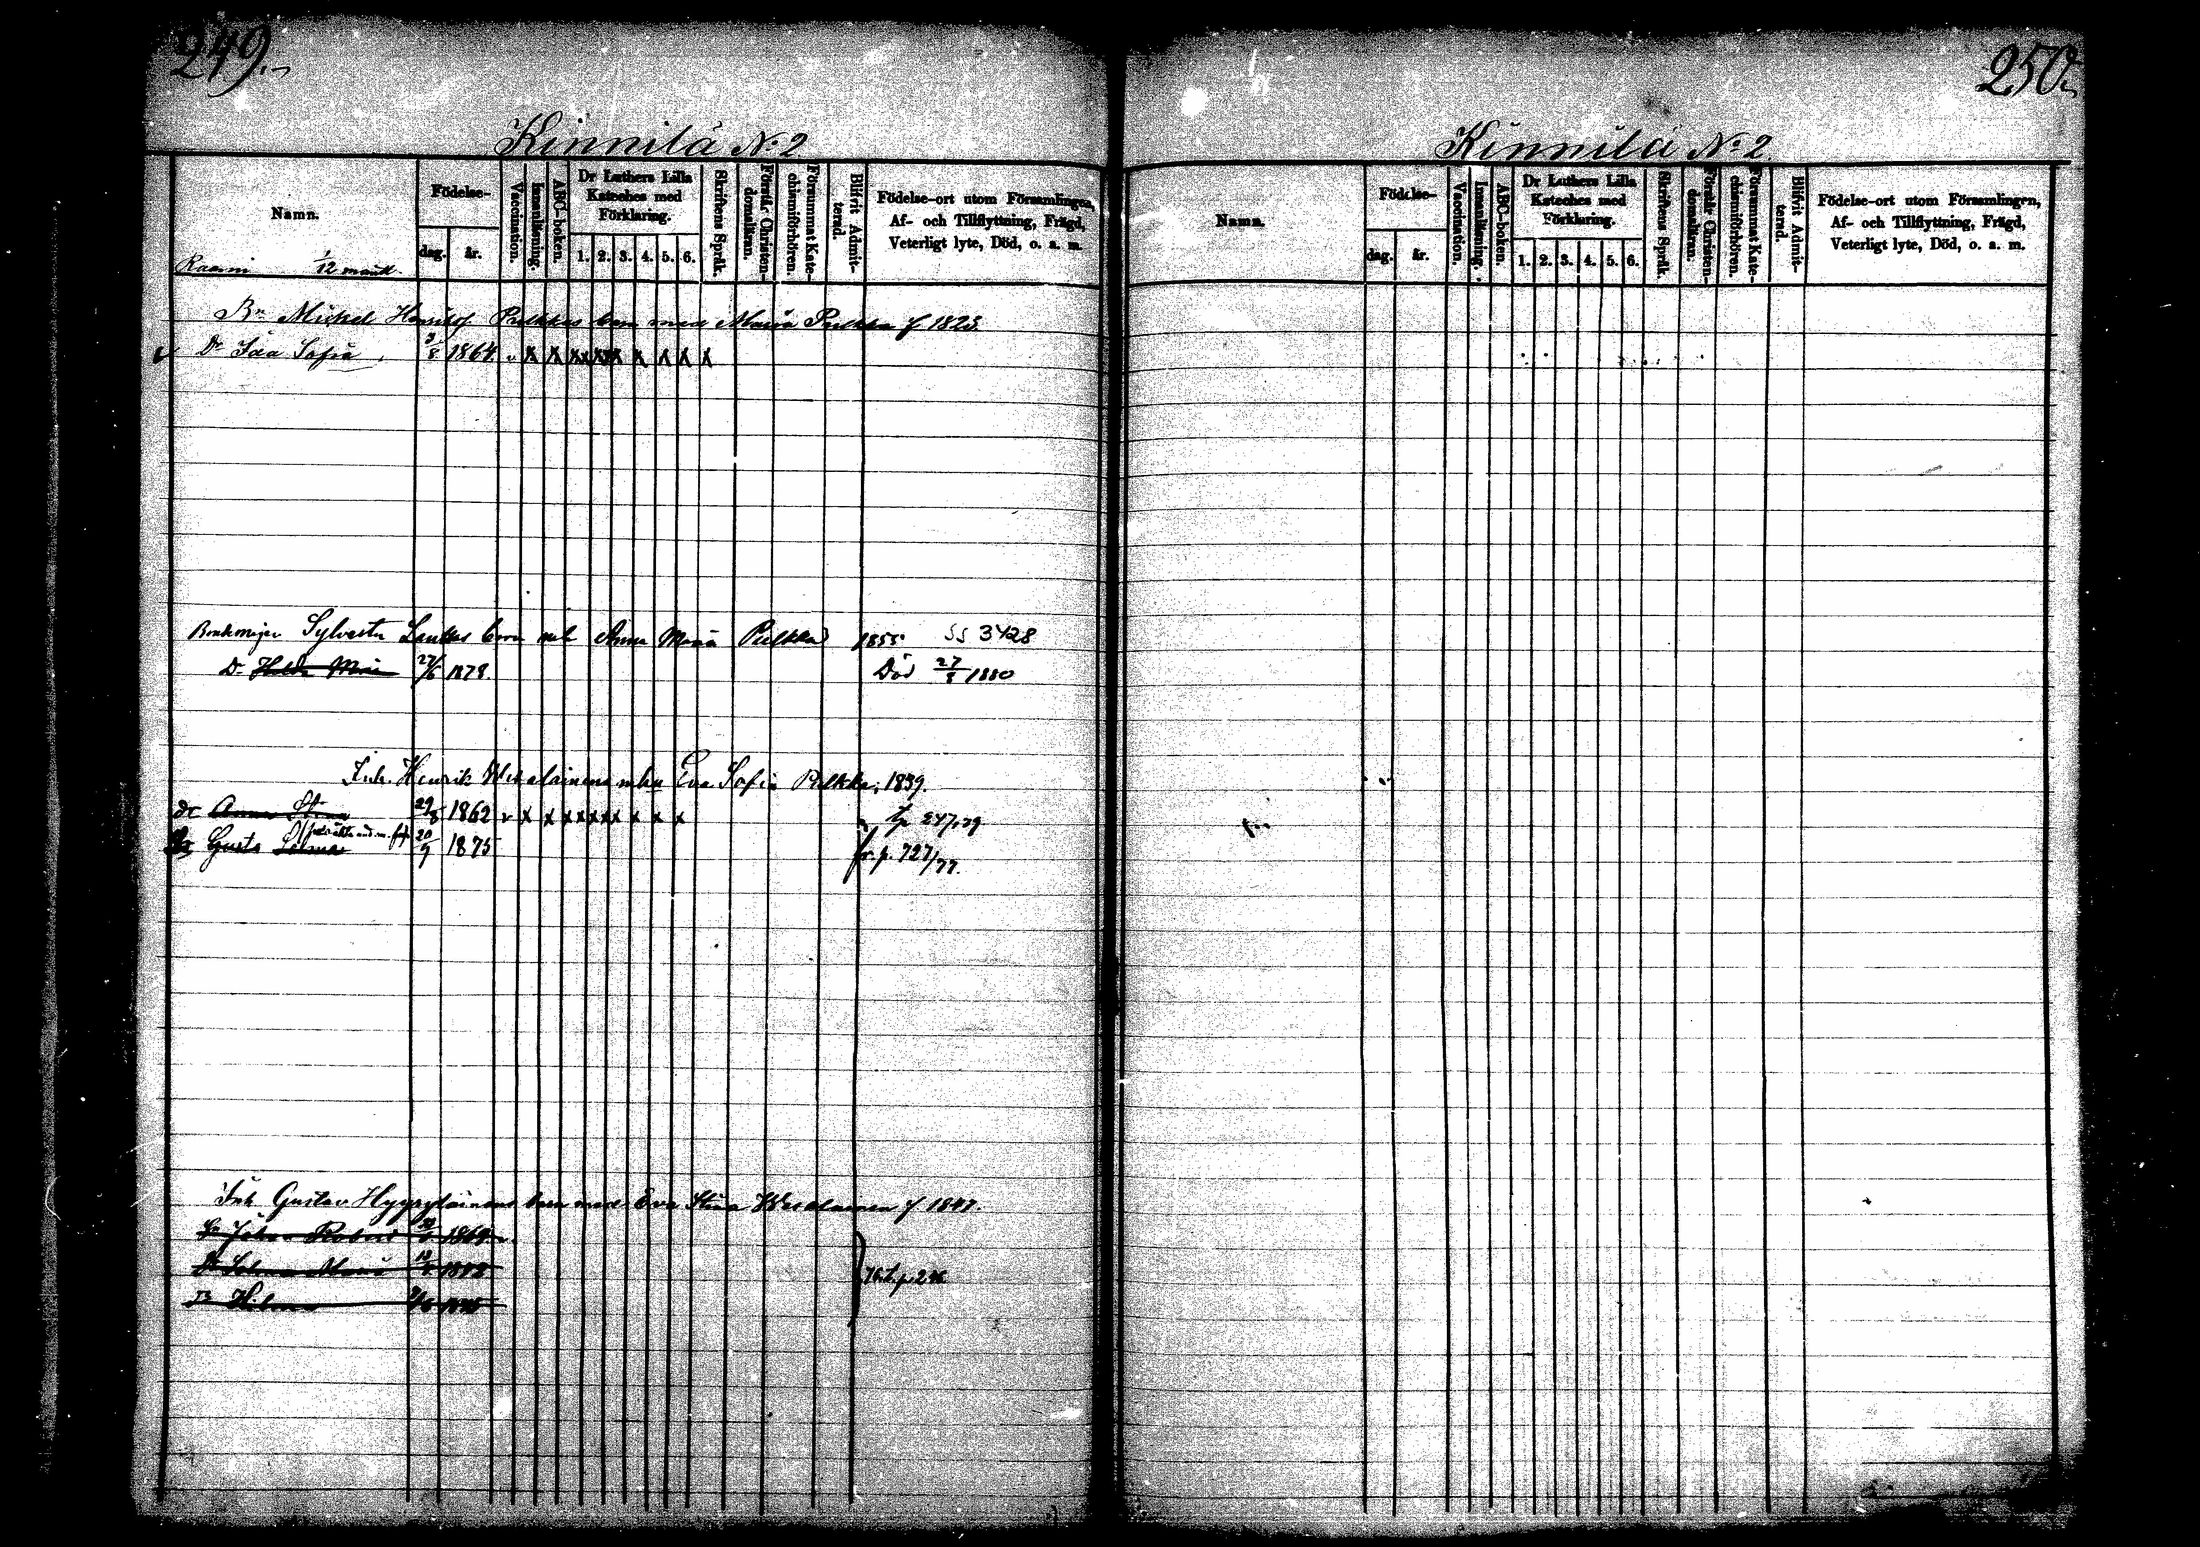 249.
Kinnilä No 2
Namn.
Födelse-
dag.
år.
Vaccination.
Innanläsning.
ABC-boken.
Dr Luthers Lilla
Kateches med
Förklaring.
1. 2. 3. 4. 5. 6.
Skriftens Språk.
Förstår Christen-
domsläran.
Försummat Kate-
chismiförhören.
Blifvit Admit-
terad.
Födelse-ort utom Församlingen,
Af- och Tillflyttning, Frägd,
Veterligt lyte, Död, o. a. m.
1/12 mant.
Michel Pulkkas barn med Maria Pulkka f 1823
Dr Ida Sofia 3/8 1864 v x x x x x x x x x x
Sylvester barn med Anna Maria Pulkka 1855 SS 3428
Dr Hilda Maria 27/6 1878. Död 27/8 1880
Inh. Henrik Eva Sofia Pulkka, 1839.
dr Anna Stina 29/8 1862 v x x x x x x x x x tp 247/79
Gusta Selma 20/9 1875 fr. p. 727/77.
Inh. Gustav Hyyryläinens barn med Eva Stina f 1847.
Johan Robert 1869
Selma Maria
Hilma
250.
Kinnilä No 2.
Namn.
Födelse-
dag.
år.
Vaccination.
Innanläsning.
ABC-boken.
Dr Luthers Lilla
Kateches med
Förklaring.
1. 2. 3. 4. 5. 6.
Skriftens Språk.
Förstår Christen-
domsläran.
Försummat Kate-
chismiförhören.
Blifvit Admit-
terad.
Födelse-ort utom Församlingen,
Af- och Tillflyttning, Frägd,
Veterligt lyte, Död, o. a. m.